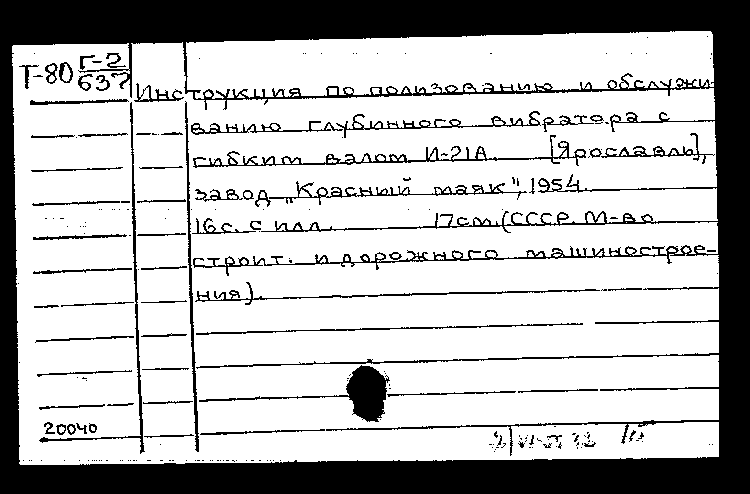 Т-80 Г-2/637
Инструкция по ползованию и обслужи-
ванию глубинного вибратора с
гибким валом И-21А. [Ярославль],
завод „Красный маяк", 1954.
16с. с илл. 17см. (СССР. М-во
строит. и дорожного машинострое-
ния).
20040